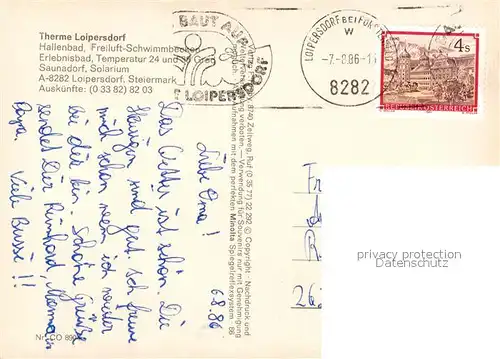 Therme Loipersdorf
Hallenbad, Freiluft-Schwimmbecken
Erlebnisbad, Temperatur 24 und 36 Grad
Saunadorf, Solarium
A-8282 Loipersdorf, Steiermark
Auskünfte: (0 33 82) 82 03
BAUT AUF
LOIPERSDORF
LOIPERSDORF BEI FÜRS
-7.-8.86-1
8282
4s
REPUBLIK ÖSTERREICH
8740 Zeltweg, Ruf (0 35 77) 22 292 © Copyright - Nachdruck und
Verwendung verboten. - Verwendung für Souvenirs nur mit Genehmigung
Aufnahmen mit dem perfekten Minolta Spiegelreflexsystem 86
6.8.86
Liebe Oma!
Das Wetter ist schön. Die
sind gut. Ich freue
mich schon wenn ich wieder
bei dir bin. Schöne Grüße
sendet Dir Reinhard, Mama
Papa. Viele Bussi!!
Fr
privacy protection
Datenschutz